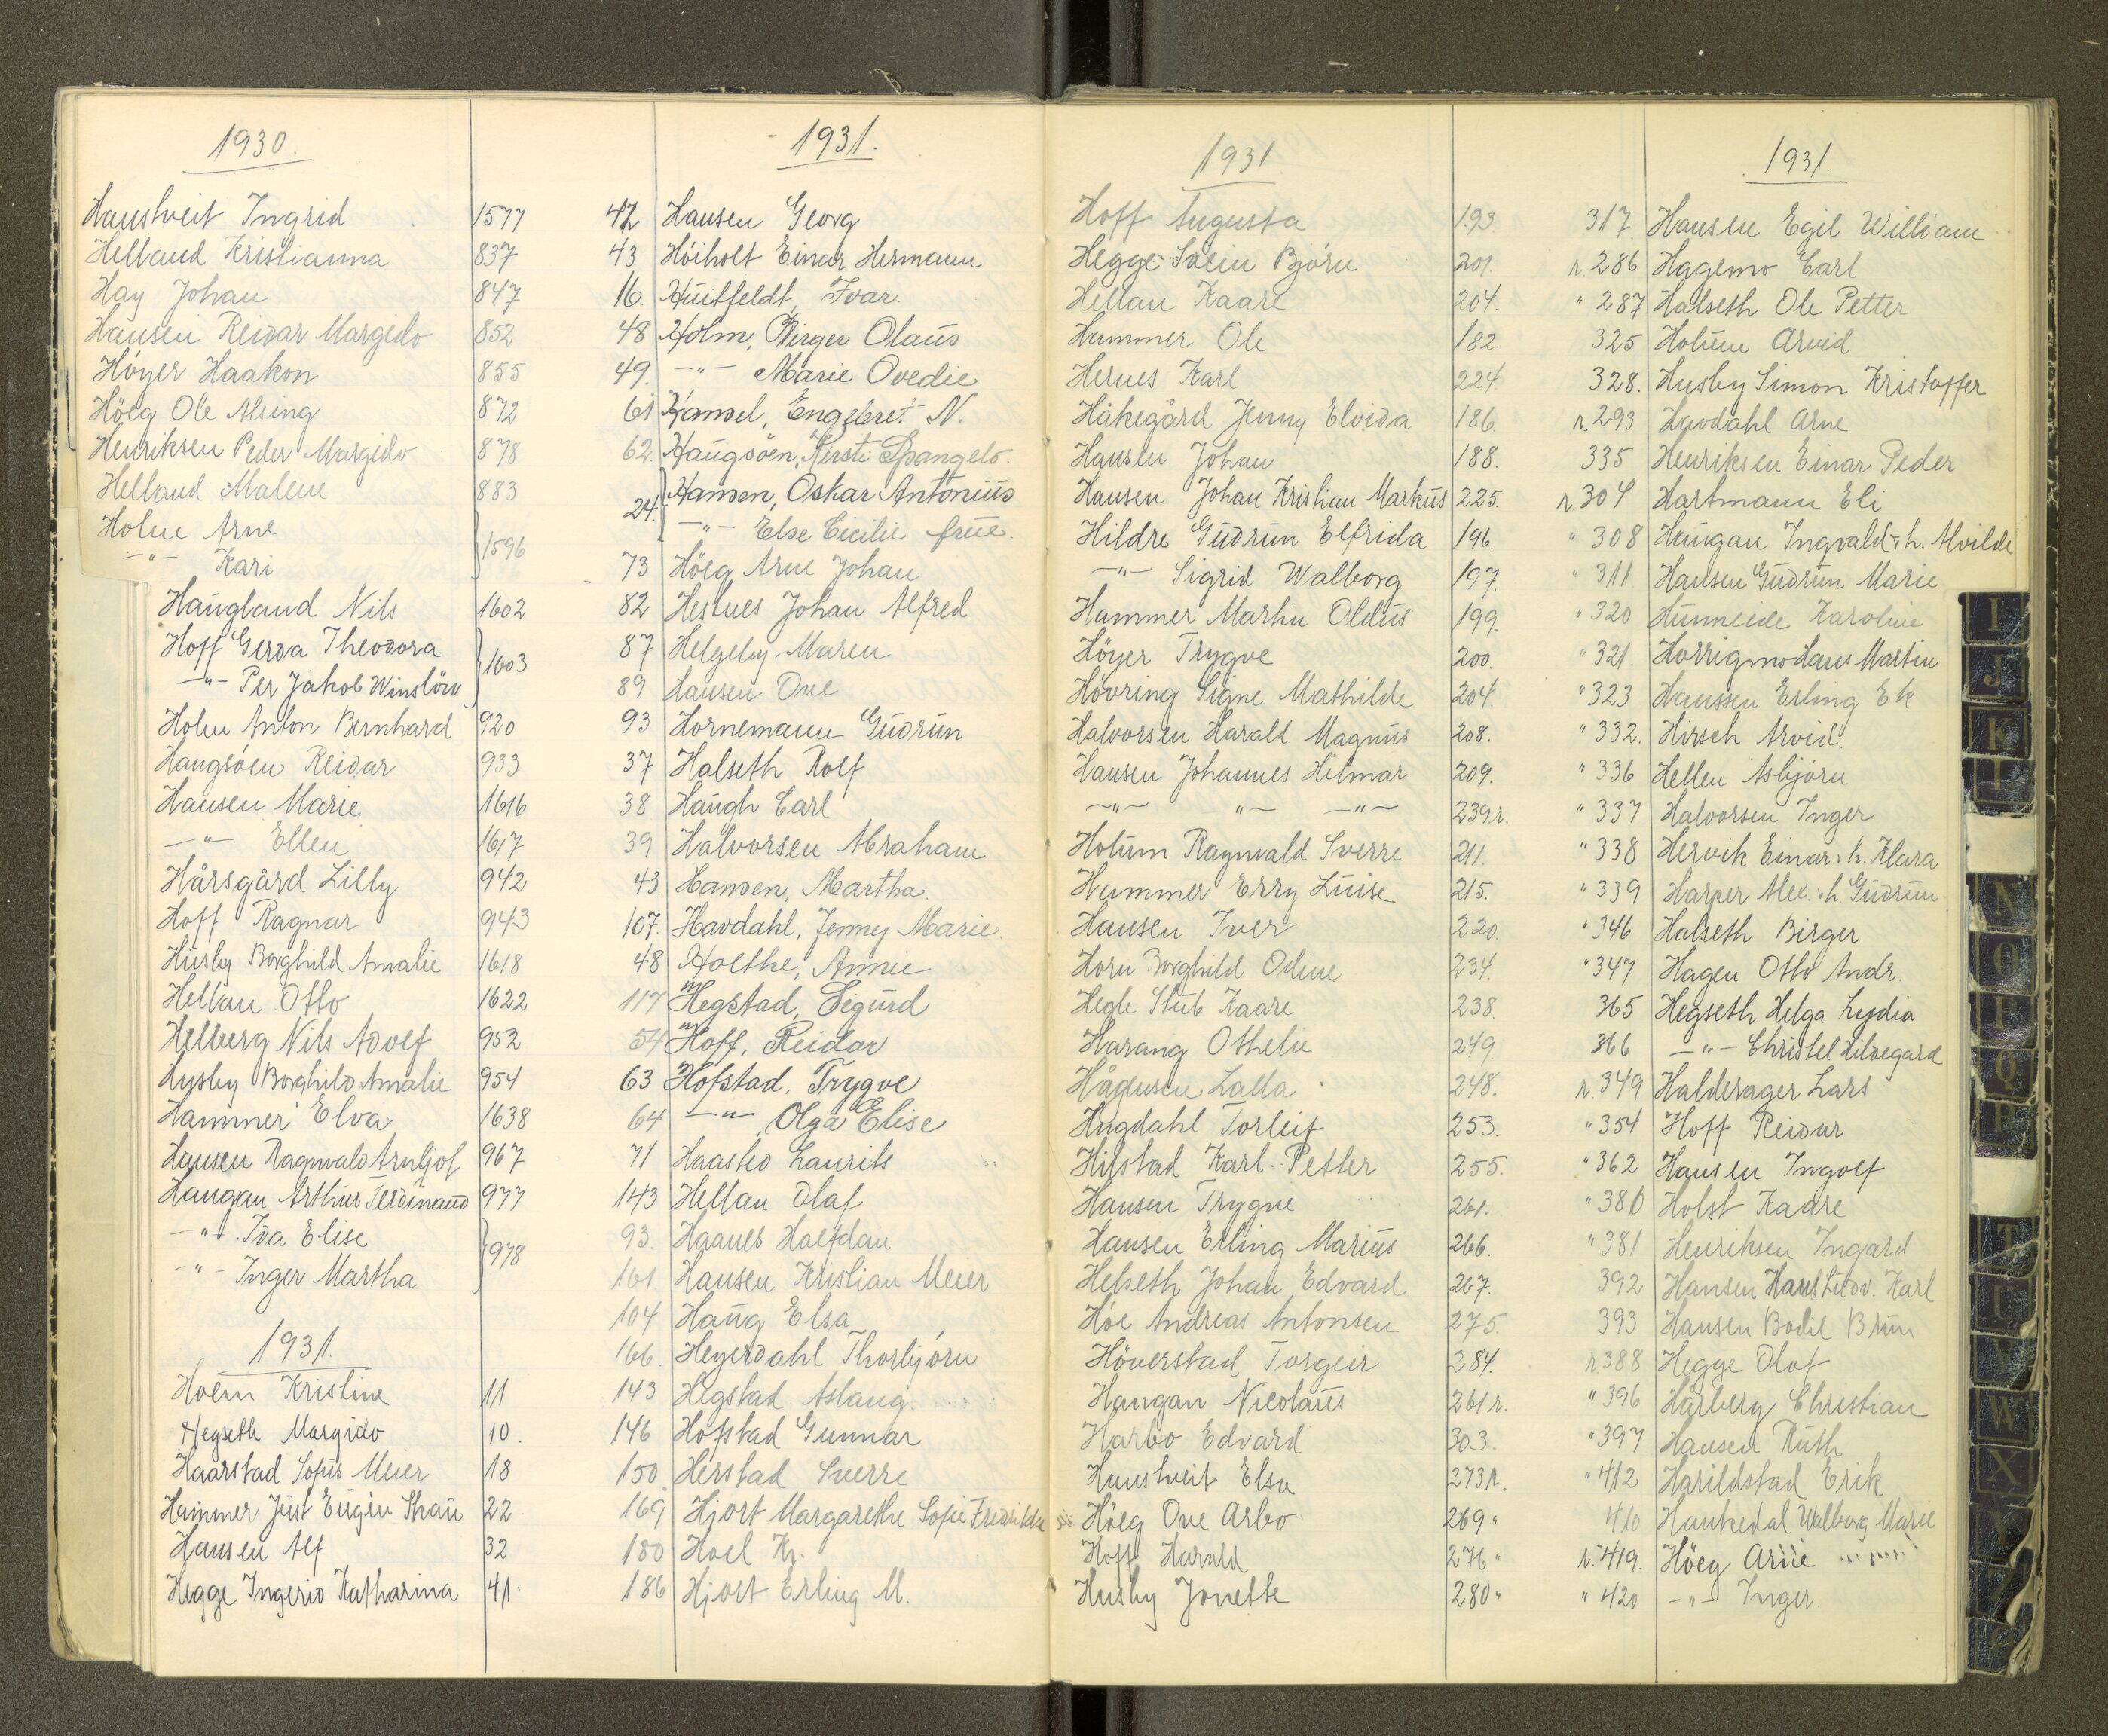 1930.
Haustveit Ingrid 1577
Helland Kristianna 837
Hay Johan 847
Hansen Reidar Margido 852
Höyer Haakon 855
Höeg Ole Alsing 872
Henriksen Peder Margido 878
Helland Malene 883
Holm Arne
-"- Kari 1596
Haugland Nils 1602
Hoff Gerda Theodora
-"- Per Jakob Winslöw 1603
Holm Anton Bernhard 920
Haugsöen Reidar 933
Hansen Marie 1616
-"- Ellen 1617
Hårsgård Lilly 942
Hoff Ragnar 943
Husby Borghild Amalie 1618
Hellan Otto 1622
Helberg Nils Adolf 952
Husby Borghild Amalie 954
Hammer Elva 1638
Hansen Ragnvald Arnljof 967
Haugan Arthur Ferdinand 977
-"- Ida Elise
-"- Inger Martha 978
1931.
Holm Kristine 11
Hegseth Margido 10.
Haarstad Sofus Meier 18
Hammer Just Eugin Skau 22
Hansen Alf 32
Hegge Ingerid Katharina 41.
1931.
42 Hansen Georg
43 Höiholt Einar Hermann
16. Huitfeldt, Ivar.
48 Holm, Birger Olaus
49. -"- Marie Ovedie
61 Hansel, Engebret N.
62. Haugsöen, Kirsti Spangelo.
24. Hansen, Oskar Antonius
-"- Else Cicilie frue.
73 Höeg Arne Johan
82 Hesnes Johan Alfred
87 Helgeby Maren
89 Hansen Ove
93 Hornemann Gudrun
37 Halseth Rolf
38 Haugh Carl
39 Halvorsen Abraham
43. Hansen, Martha.
107. Havdahl, Jenny Marie.
48 Holthe, Annie
117 Hegstad, Sigurd
54 Hoff, Reidar
63 Hofstad, Trygve
64 -"- , Olga Elise
71 Haasted Laurits
143 Hellan Olaf
93. Haanes Halfdan
161 Hansen Kristian Meier
104 Haug Elsa
166. Heyerdahl Thorbjörn
143 Hegstad Aslaug.
146 Hofstad Gunnar
150 Herstad Sverre
169 Hjort Margarethe Sofie Fredrikke
180 Hoel Kr.
186 Hjort Erling M.
1931
Hoff Augusta 193.
Hegge Svein Björn 201.
Hellan Kaare 204.
Hammer Ole 182.
Hernes Karl 224.
Håkegård Jenny Elvida 186.
Hansen Johan 188.
Hansen Johan Kristian Markus 225.
Hildre Gudrun Elfrida 196.
-"- Sigrid Walborg 197.
Hammer Martin Oldus 199.
Höyer Trygve 200.
Hövring Signe Mathilde 204.
Halvorsen Harald Magnus 208.
Hansen Johannes Hilmar 209.
-"- "- -"- 239r.
Holum Ragnvald Sverre 211.
Hammer Erry Luise 215.
Hansen Iver 220.
Horn Borghild Odine 234.
Hegle Stub Kaare 238.
Harang Othelie 249.
Hågensen Lalla 248.
Hagdahl Torleif 253.
Hilstad Karl Petter 255.
Hansen Trygve 261.
Hansen Erling Marius 266.
Helseth Johan Edvard 267.
Höe Andreas Antonsen 275.
Höverstad Torgeir 284.
Haugan Nicolaus 261r.
Harbo Edvard 303.
Haustveit Elsa 273r.
Höeg Ove Arbo 269"
Hoff Harald 276"
Husby Jonette 280"
1931.
317. Hansen Egil William
r. 286 Hagemo Carl
" 287 Halseth Ole Petter
325 Holum Arvid
328. Husby Simon Kristoffer
r. 293 Havdahl Arne
335 Henriksen Einar Peder
r. 304 Hartmann Eli
" 308 Haugan Ingvald & h. Alvilde
" 311 Hansen Gudrun Marie
" 320 Hunneide Karoline
" 321. Horrigmo Hans Martin
" 323 Hanssen Erling Ek
" 332. Hirsch Arvid.
" 336 Hellen Asbjörn
" 337 Halvorsen Inger
" 338 Hervik Einar & h. Klara
" 339 Harper Alex. & h. Gudrun
" 346 Halseth Birger
" 347 Hagen Otto Andr.
365 Hegseth Helga Lydia
366 -"- Christel Hildegard
r. 349 Halderager Lars
" 354 Hoff Reidar
" 362 Hansen Ingolf
" 380 Holst Kaare
" 381 Henriksen Ingard
392 Hansen Hans Ludv. Karl
393 Hansen Bodil Brun
r 388 Hegge Olof
" 396 Hårberg Christian
" 397 Hansen Ruth
" 412 Harildstad Erik
410 Haukedal Walborg Marie
r. 419. Höeg Arne
" 420 -"- Inger.
I
J
K
L
N
O
P
Q
P
T
U
V
W
X
Y
Z